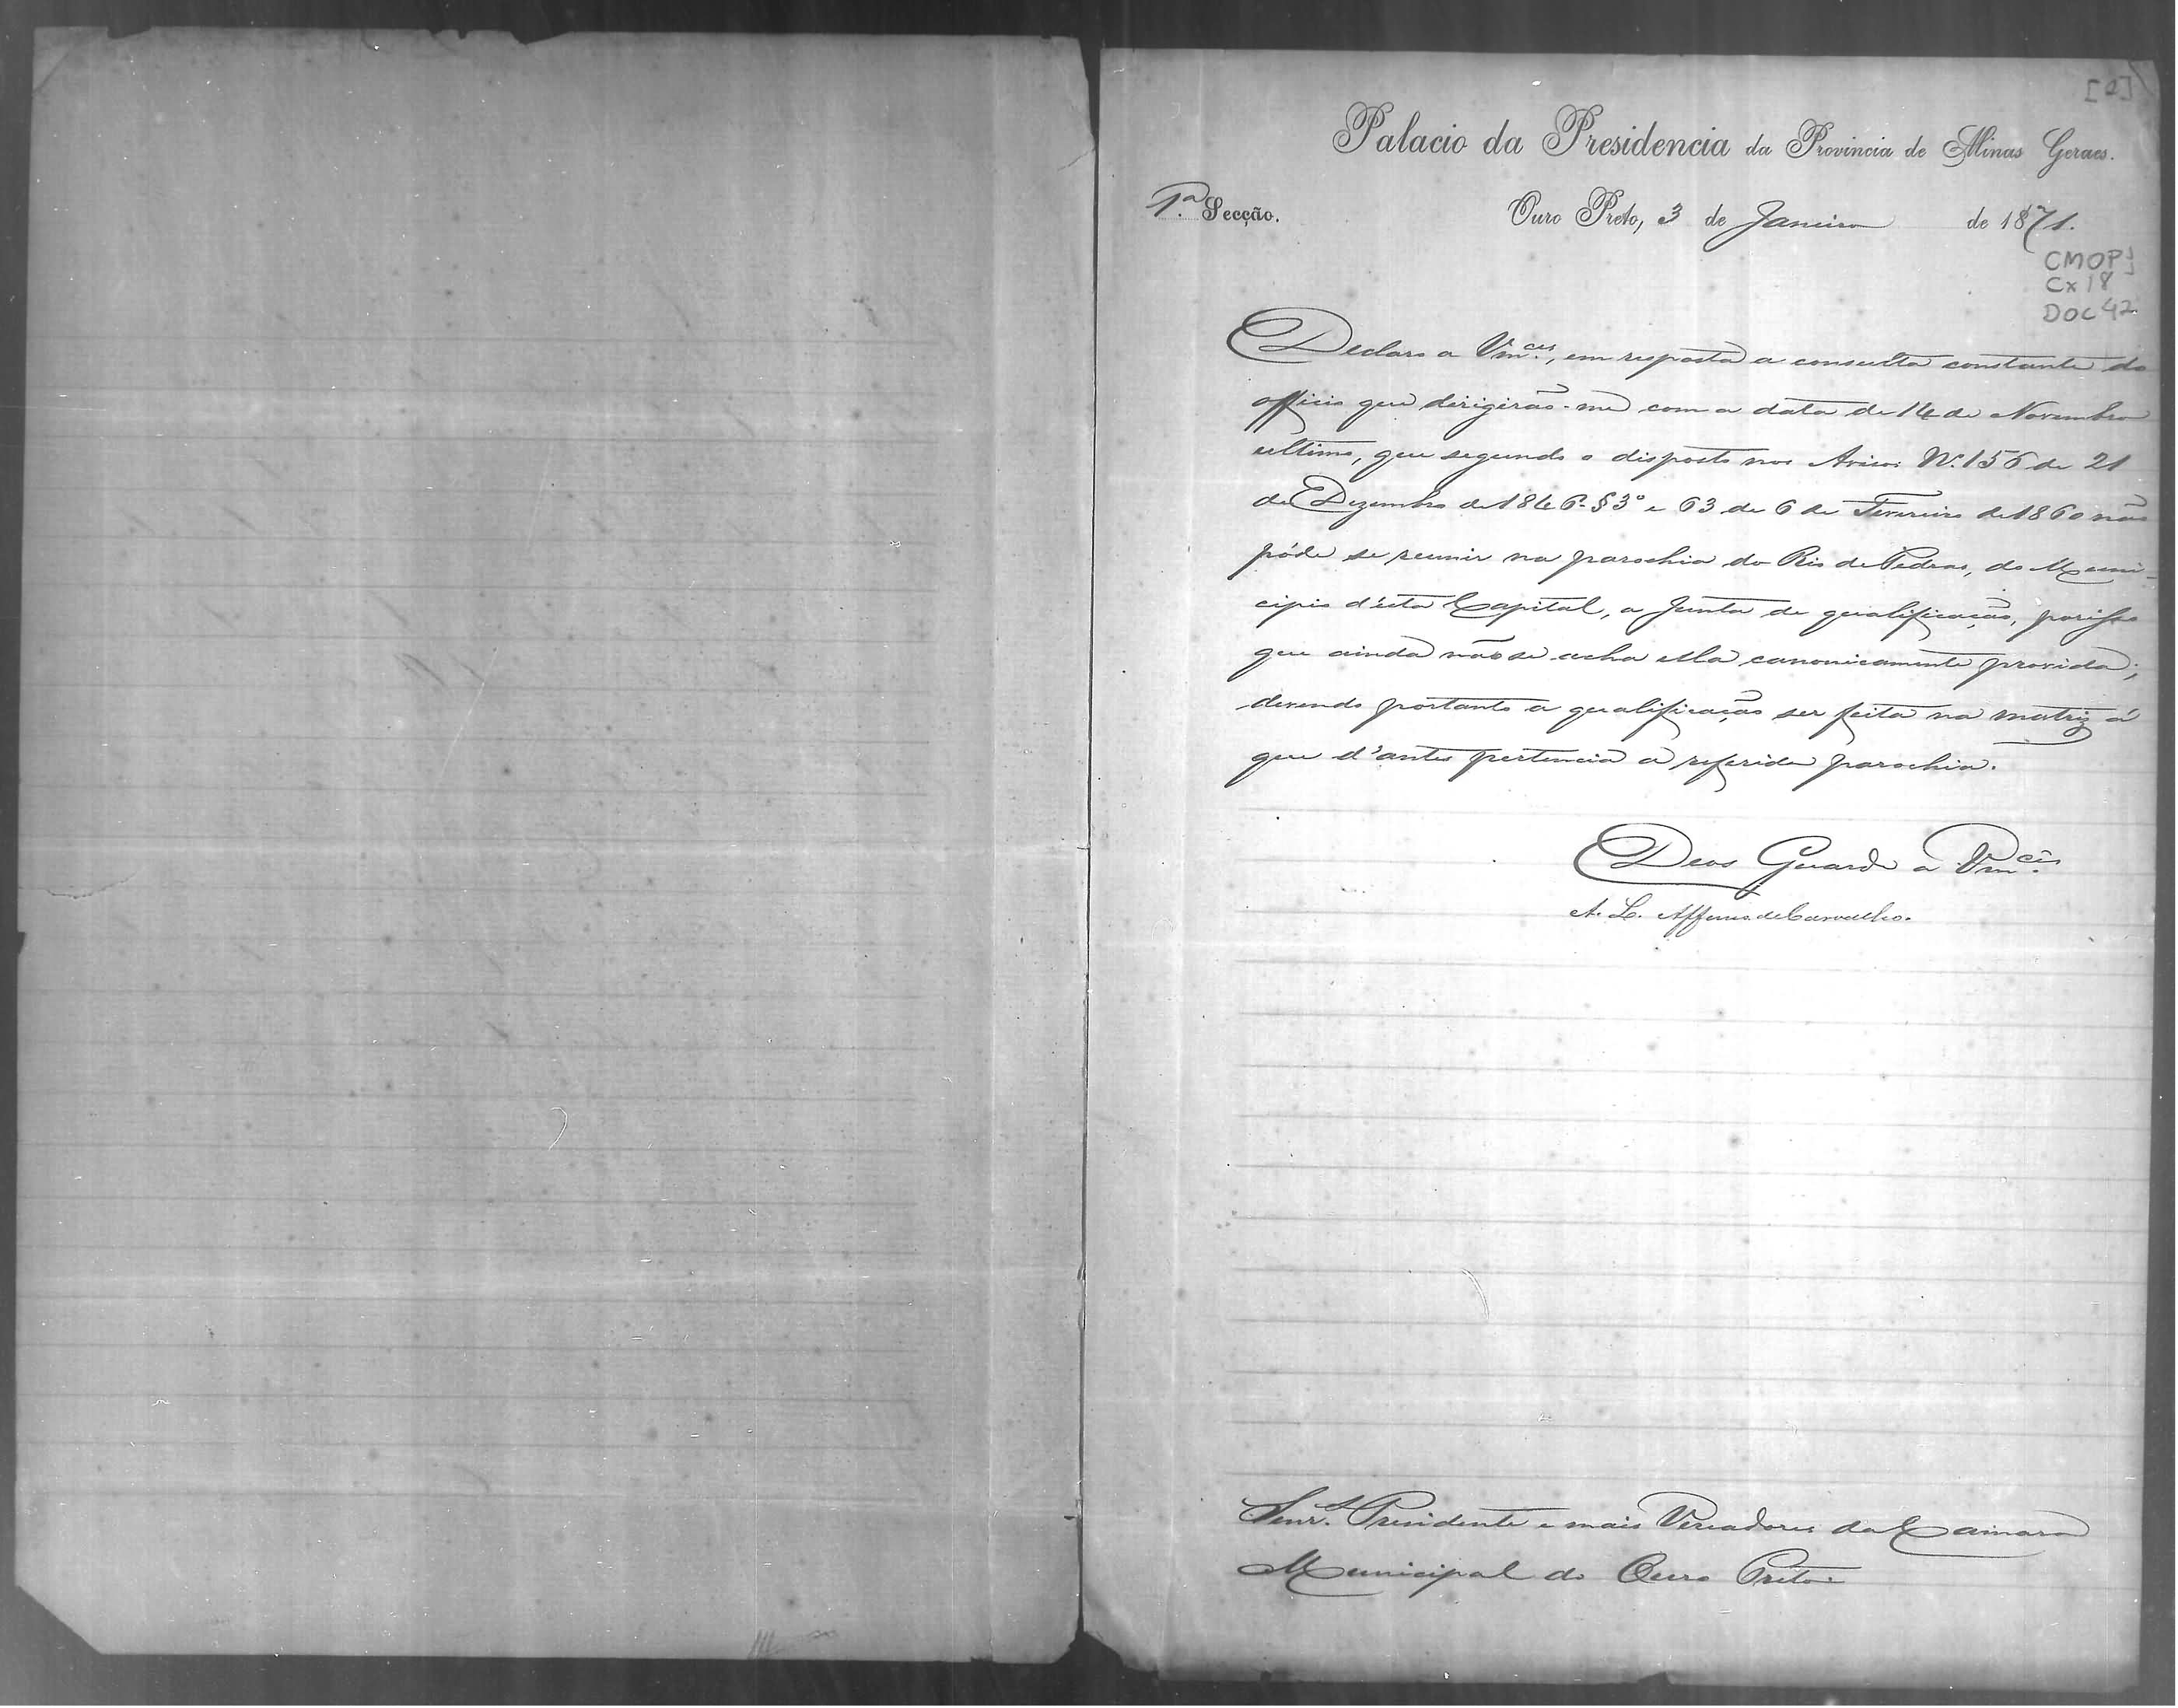 [2]
Palacio da Presidencia da Provincia de Minas Geraes.
1.ª Secção. Ouro Preto, 3 de Janeiro de 1871.
CMOP
Cx 18
DOC 42
Declaro a Vm.ces, em resposta a consulta constante do
officio que dirigirão-me com a data de 14 de Novembro
ultimo, que segundo o disposto nos Avisos N. 156 de 21
de Dezembro de 1846 § 3º e 63 de 6 de Fevereiro de 1860 não
póde se reunir na parochia do Rio de Pedras, do Muni-
cipio d'esta Capital, a Junta de qualificação, porisso
que ainda não se acha ella canonicamente provida;
devendo portanto a qualificação ser feita na matriz á
que d'antes pertencia a referida parochia.
Deos Guarde a Vm.ces
A. L. Affonso de Carvalho.
Senr.s Presidente e mais Vereadores da Camara
Municipal do Ouro Preto